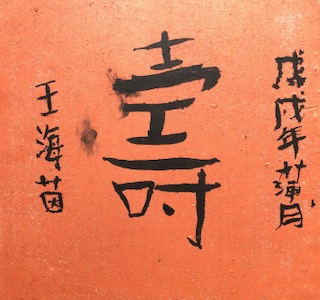 戊戌年蒲月
壽
王海茵